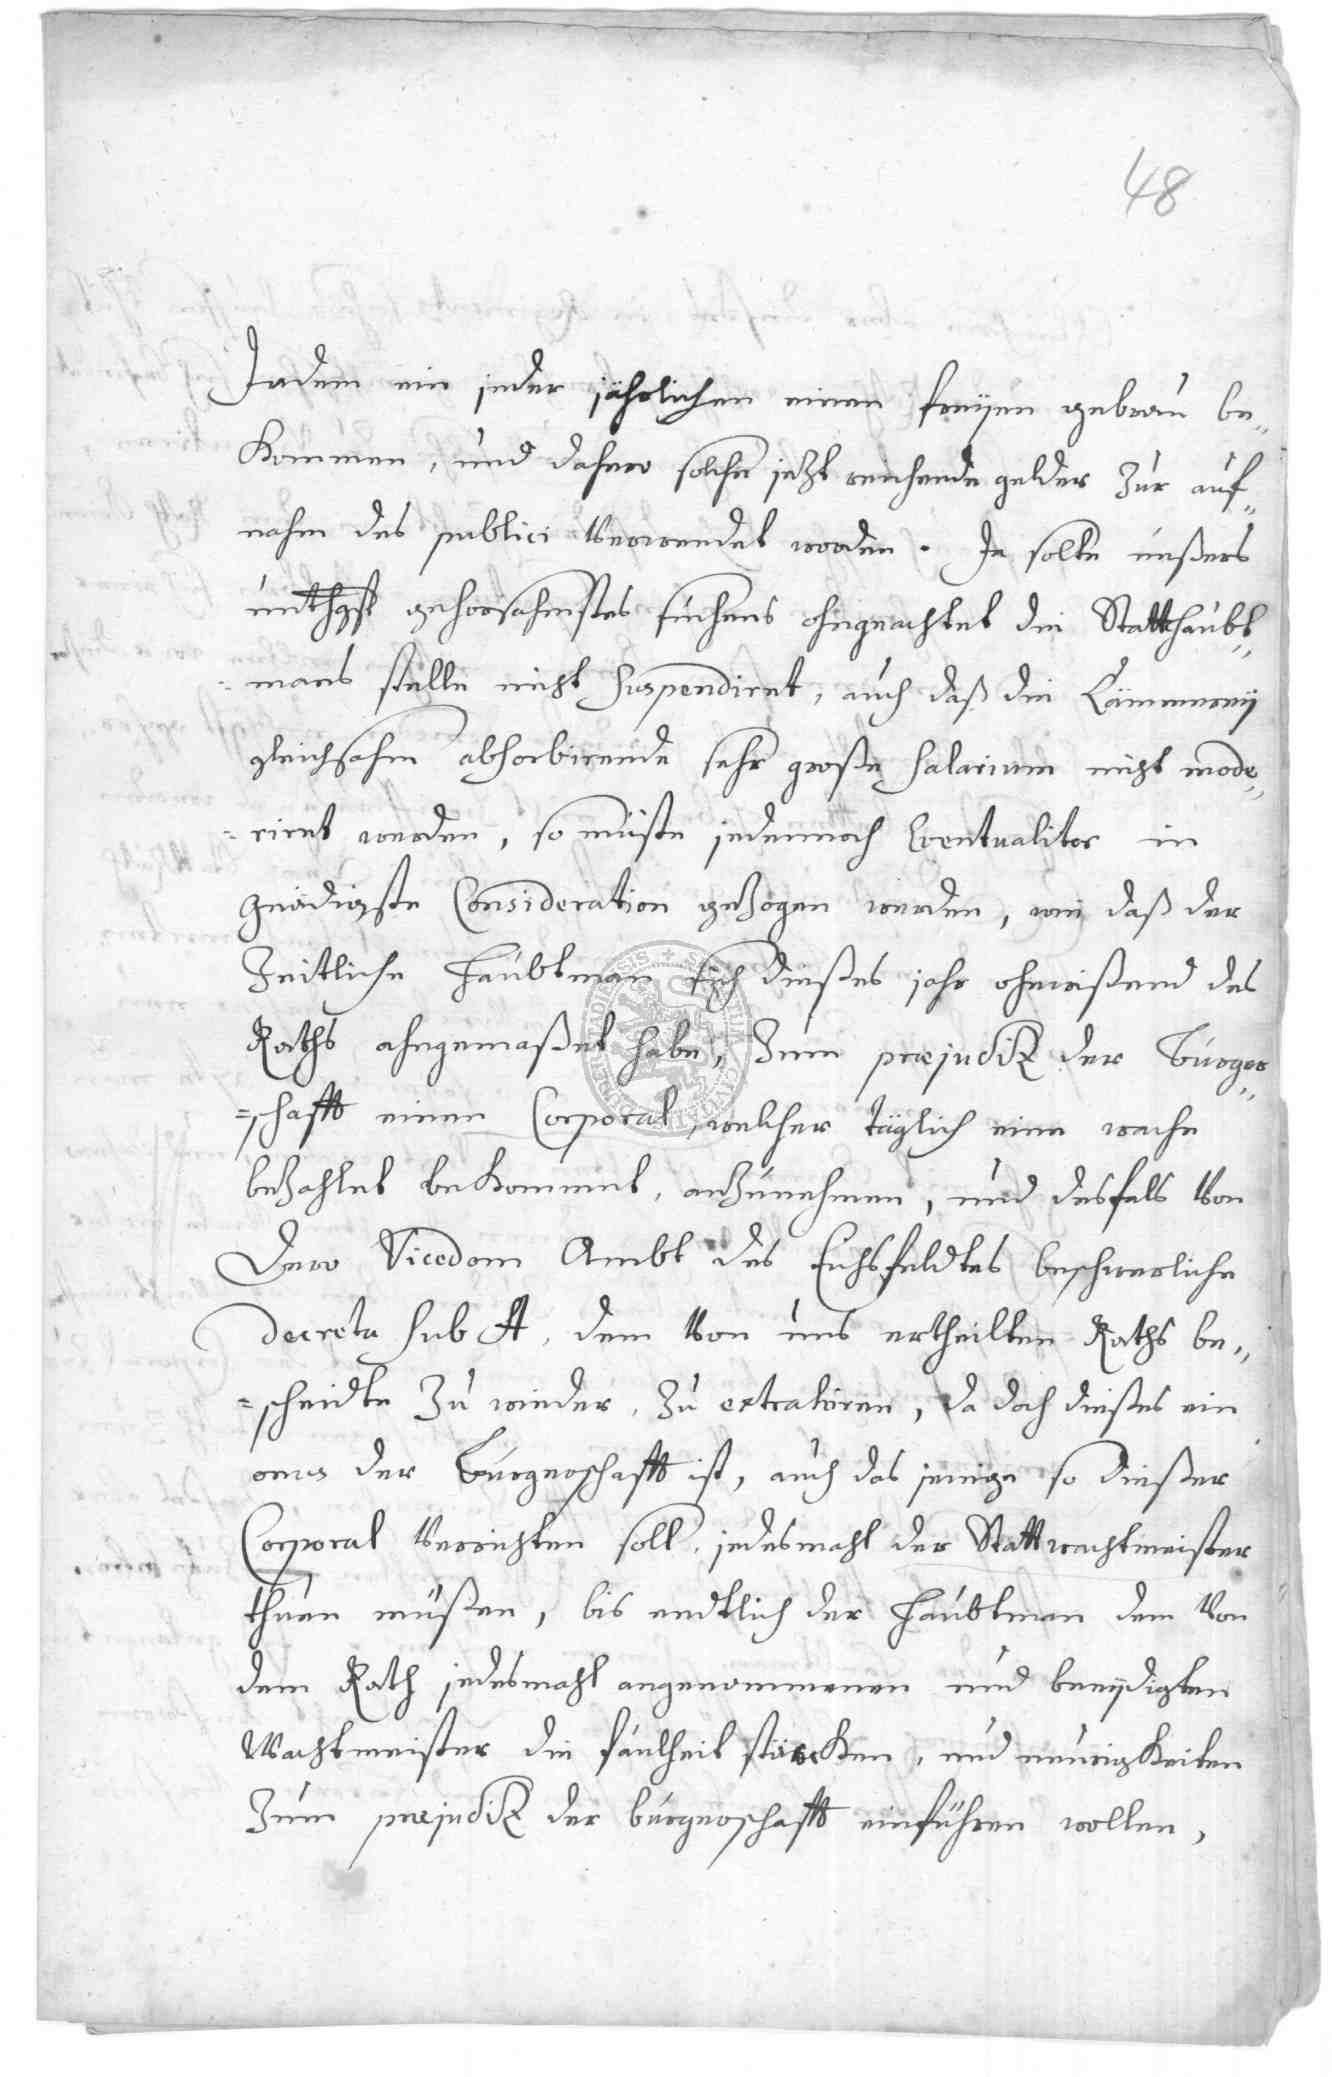 48
Indem ein jeder jährlichen einen freyen gebrau be„
kommen, und dahero solche jetzt reichende gelder zur auf„
nahm des publici verwendet worden. Ja solte unßers
unthgst gehorsahmstes suchens ohngeachtet die Statthaubt„
mans stelle nicht suspendiret, auch daß die Cämmerey
gleichsahm absorbirende sehr große salarium nicht mode„
=riret werden, so müste jedennoch Eventualiter in
gnädigste Consideration gezogen werden, wie daß der
Zeitliche Haubtman sich dießes jahr ohnwißend des
Raths ahngemaßet habe, zum præjuditz der Bürger„
=schafft einen Corporal, welcher täglich eine wache
bezahlet bekommet, anzunehmen, und desfals von
Dero Vicedom Ambt des Eichsfeldtes beschwerliche
decreta sub A, dem von uns ertheilten Raths be„
=scheidte zu wieder, zu extrahiren, da doch dießes ein
onus der Bürgerschafft ist, auch das jenige so dießer
Corporal verrichten soll, jedesmahl der Stattwachtmeister
thuen müßen, bis endtlich der Haubtman dem von
dem Rath jedesmahl angenommenen und beeydigten
Wachtmeister die faulheit stärcken, und neurigkeiten
zum præjuditz der bürgerschafft einführen wollen,